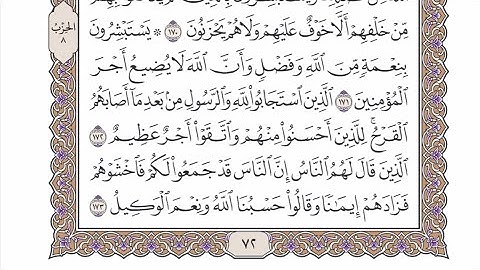 مِّنْ خَلْفِهِمْ أَلَّا خَوْفٌ عَلَيْهِمْ وَلَا هُمْ يَحْزَنُونَ ١٧٠ ۞ يَسْتَبْشِرُونَ
بِنِعْمَةٍ مِّنَ ٱللَّهِ وَفَضْلٍ وَأَنَّ ٱللَّهَ لَا يُضِيعُ أَجْرَ
ٱلْمُؤْمِنِينَ ١٧١ ٱلَّذِينَ ٱسْتَجَابُوا۟ لِلَّهِ وَٱلرَّسُولِ مِنۢ بَعْدِ مَآ أَصَابَهُمُ
ٱلْقَرْحُ ۚ لِلَّذِينَ أَحْسَنُوا۟ مِنْهُمْ وَٱتَّقَوْا۟ أَجْرٌ عَظِيمٌ ١٧٢
ٱلَّذِينَ قَالَ لَهُمُ ٱلنَّاسُ إِنَّ ٱلنَّاسَ قَدْ جَمَعُوا۟ لَكُمْ فَٱخْشَوْهُمْ
فَزَادَهُمْ إِيمَـٰنًا وَقَالُوا۟ حَسْبُنَا ٱللَّهُ وَنِعْمَ ٱلْوَكِيلُ ١٧٣
٧٢
الحزب
٨